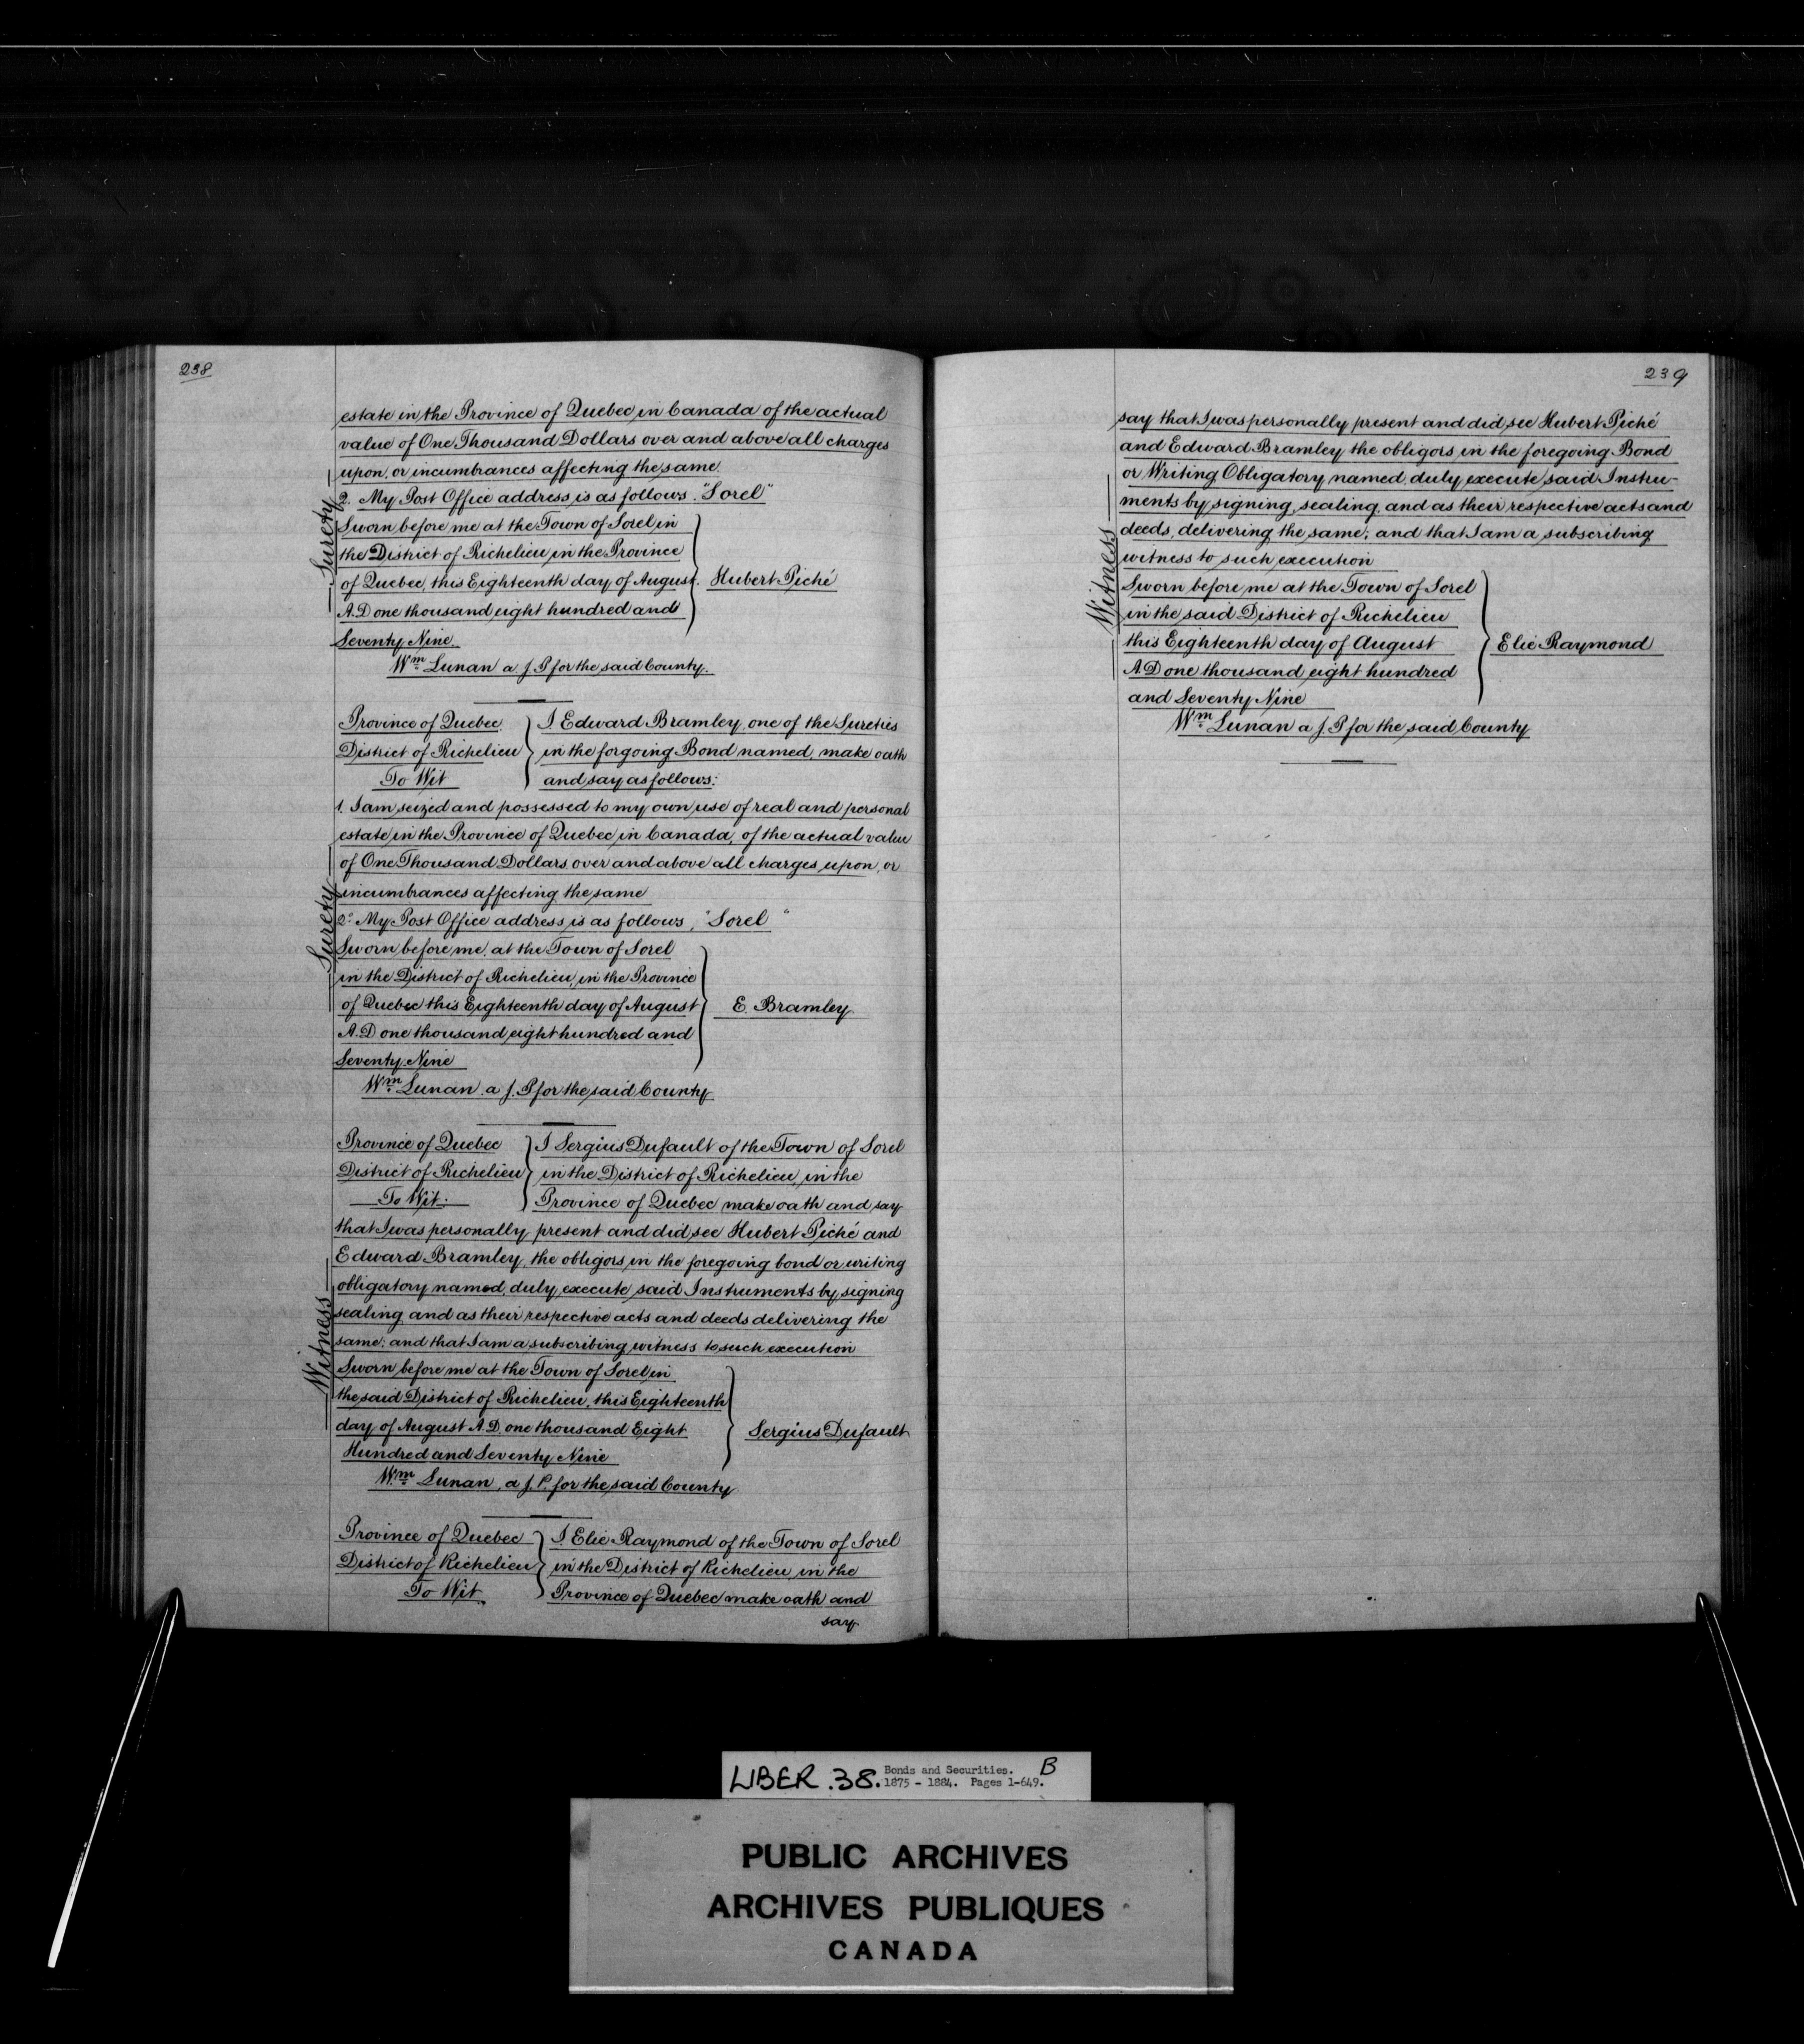 238
estate in the Province of Quebec in Canada of the actual
value of One Thousand Dollars over and above all charges
upon, or incumbrances affecting the same.
2. My Post Office address is as follows. "Sorel"
Surety
Sworn before me at the Town of Sorel in
the District of Richelieu in the Province
of Quebec, this Eighteenth day of August. Hubert Piché
A.D one thousand eight hundred and
Seventy Nine.
Wm Lunan a J.P for the said County.
Province of Quebec. I Edward Bramley, one of the Sureties
District of Richelieu in the forgoing Bond named, make oath
To Wit and say as follows:
1. I am seized and possessed to my own use of real and personal
estate in the Province of Quebec in Canada, of the actual value
of One Thousand Dollars over and above all charges upon, or
incumbrances affecting the same
2º My Post Office address is as follows, "Sorel"
Surety
Sworn before me, at the Town of Sorel
in the District of Richelieu, in the Province
of Quebec this Eighteenth day of August E. Bramley
A.D one thousand eight hundred and
Seventy Nine
Wm Lunan. a J.P for the said County
Province of Quebec I Sergius Dufault of the Town of Sorel
District of Richelieu in the District of Richelieu, in the
To Wit: Province of Quebec make oath and say
that I was personally present and did see Hubert Piché and
Edward Bramley, the obligors in the foregoing bond or writing
obligatory named, duly execute said Instruments by signing
sealing and as their respective acts and deeds delivering the
same: and that I am a subscribing witness to such execution
Witness
Sworn before me at the Town of Sorel in
the said District of Richelieu, this Eighteenth
day of August A.D. one thousand Eight Sergius Dufault
Hundred and Seventy Nine
Wm Lunan, a J.P. for the said County
Province of Quebec I Elie Raymond of the Town of Sorel
District of Richelieu in the District of Richelieu in the
To Wit. Province of Quebec make oath and
say
239
say that I was personally present and did see Hubert Piché
and Edward Bramley the obligors in the foregoing Bond
or Writing Obligatory named, duly execute said Instru-
ments by signing, sealing, and as their respective acts and
deeds, delivering the same; and that I am a subscribing
witness to such execution
Witness
Sworn before me at the Town of Sorel
in the said District of Richelieu
this Eighteenth day of August Elie Raymond
A.D one thousand eight hundred
and Seventy Nine
Wm Lunan a J.P for the said County
LIBER. 38. Bonds and Securities. B
1875 - 1884. Pages 1-649.
PUBLIC ARCHIVES
ARCHIVES PUBLIQUES
CANADA